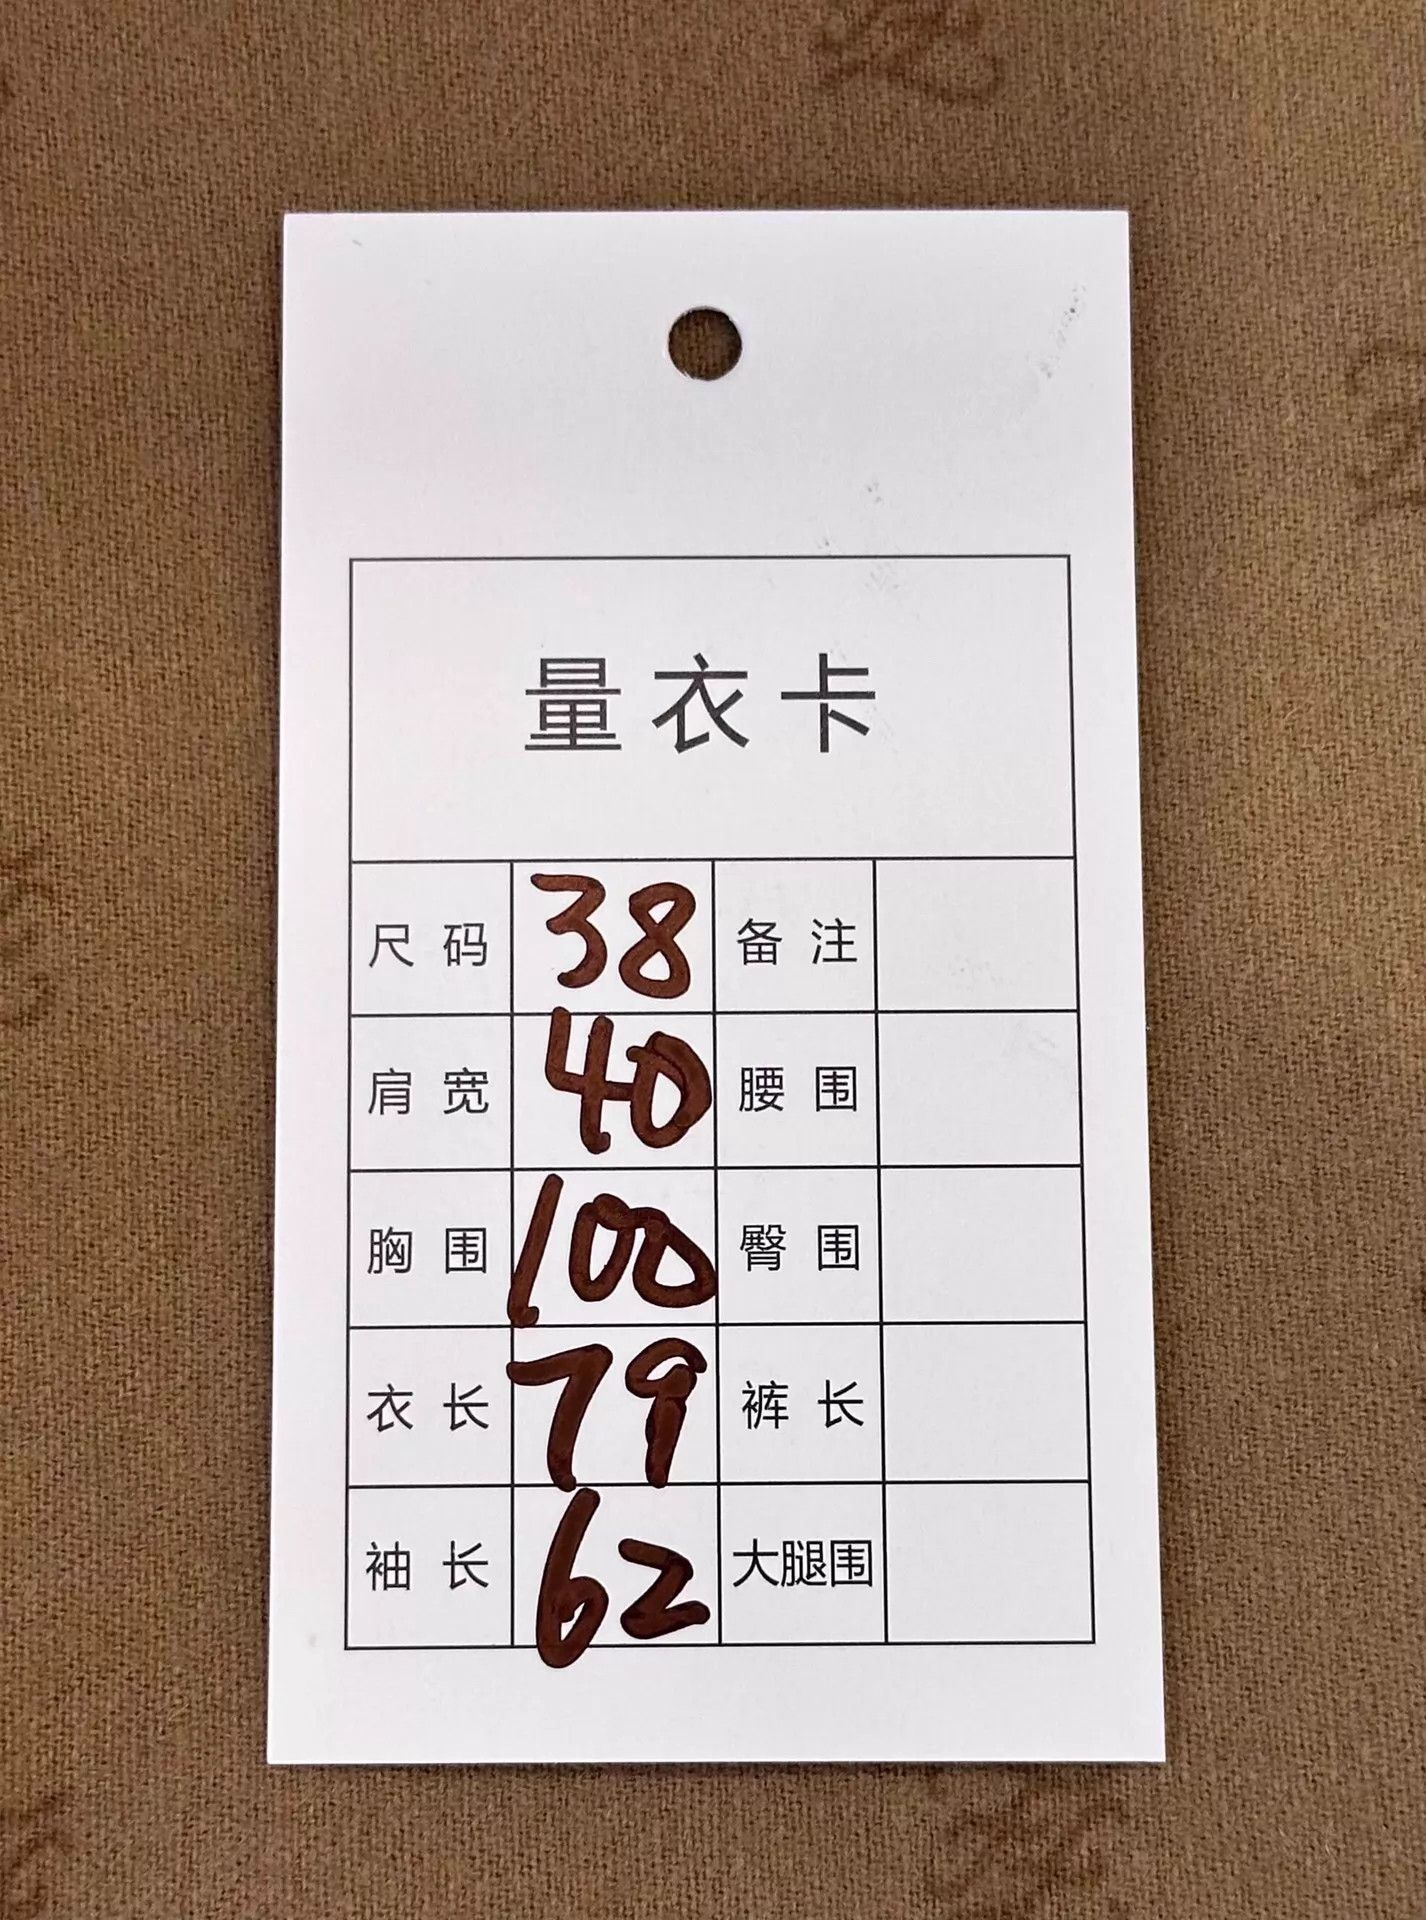 量衣卡
尺码 38 备注
肩宽 40 腰围
胸围 100 臀围
衣长 79 裤长
袖长 62 大腿围